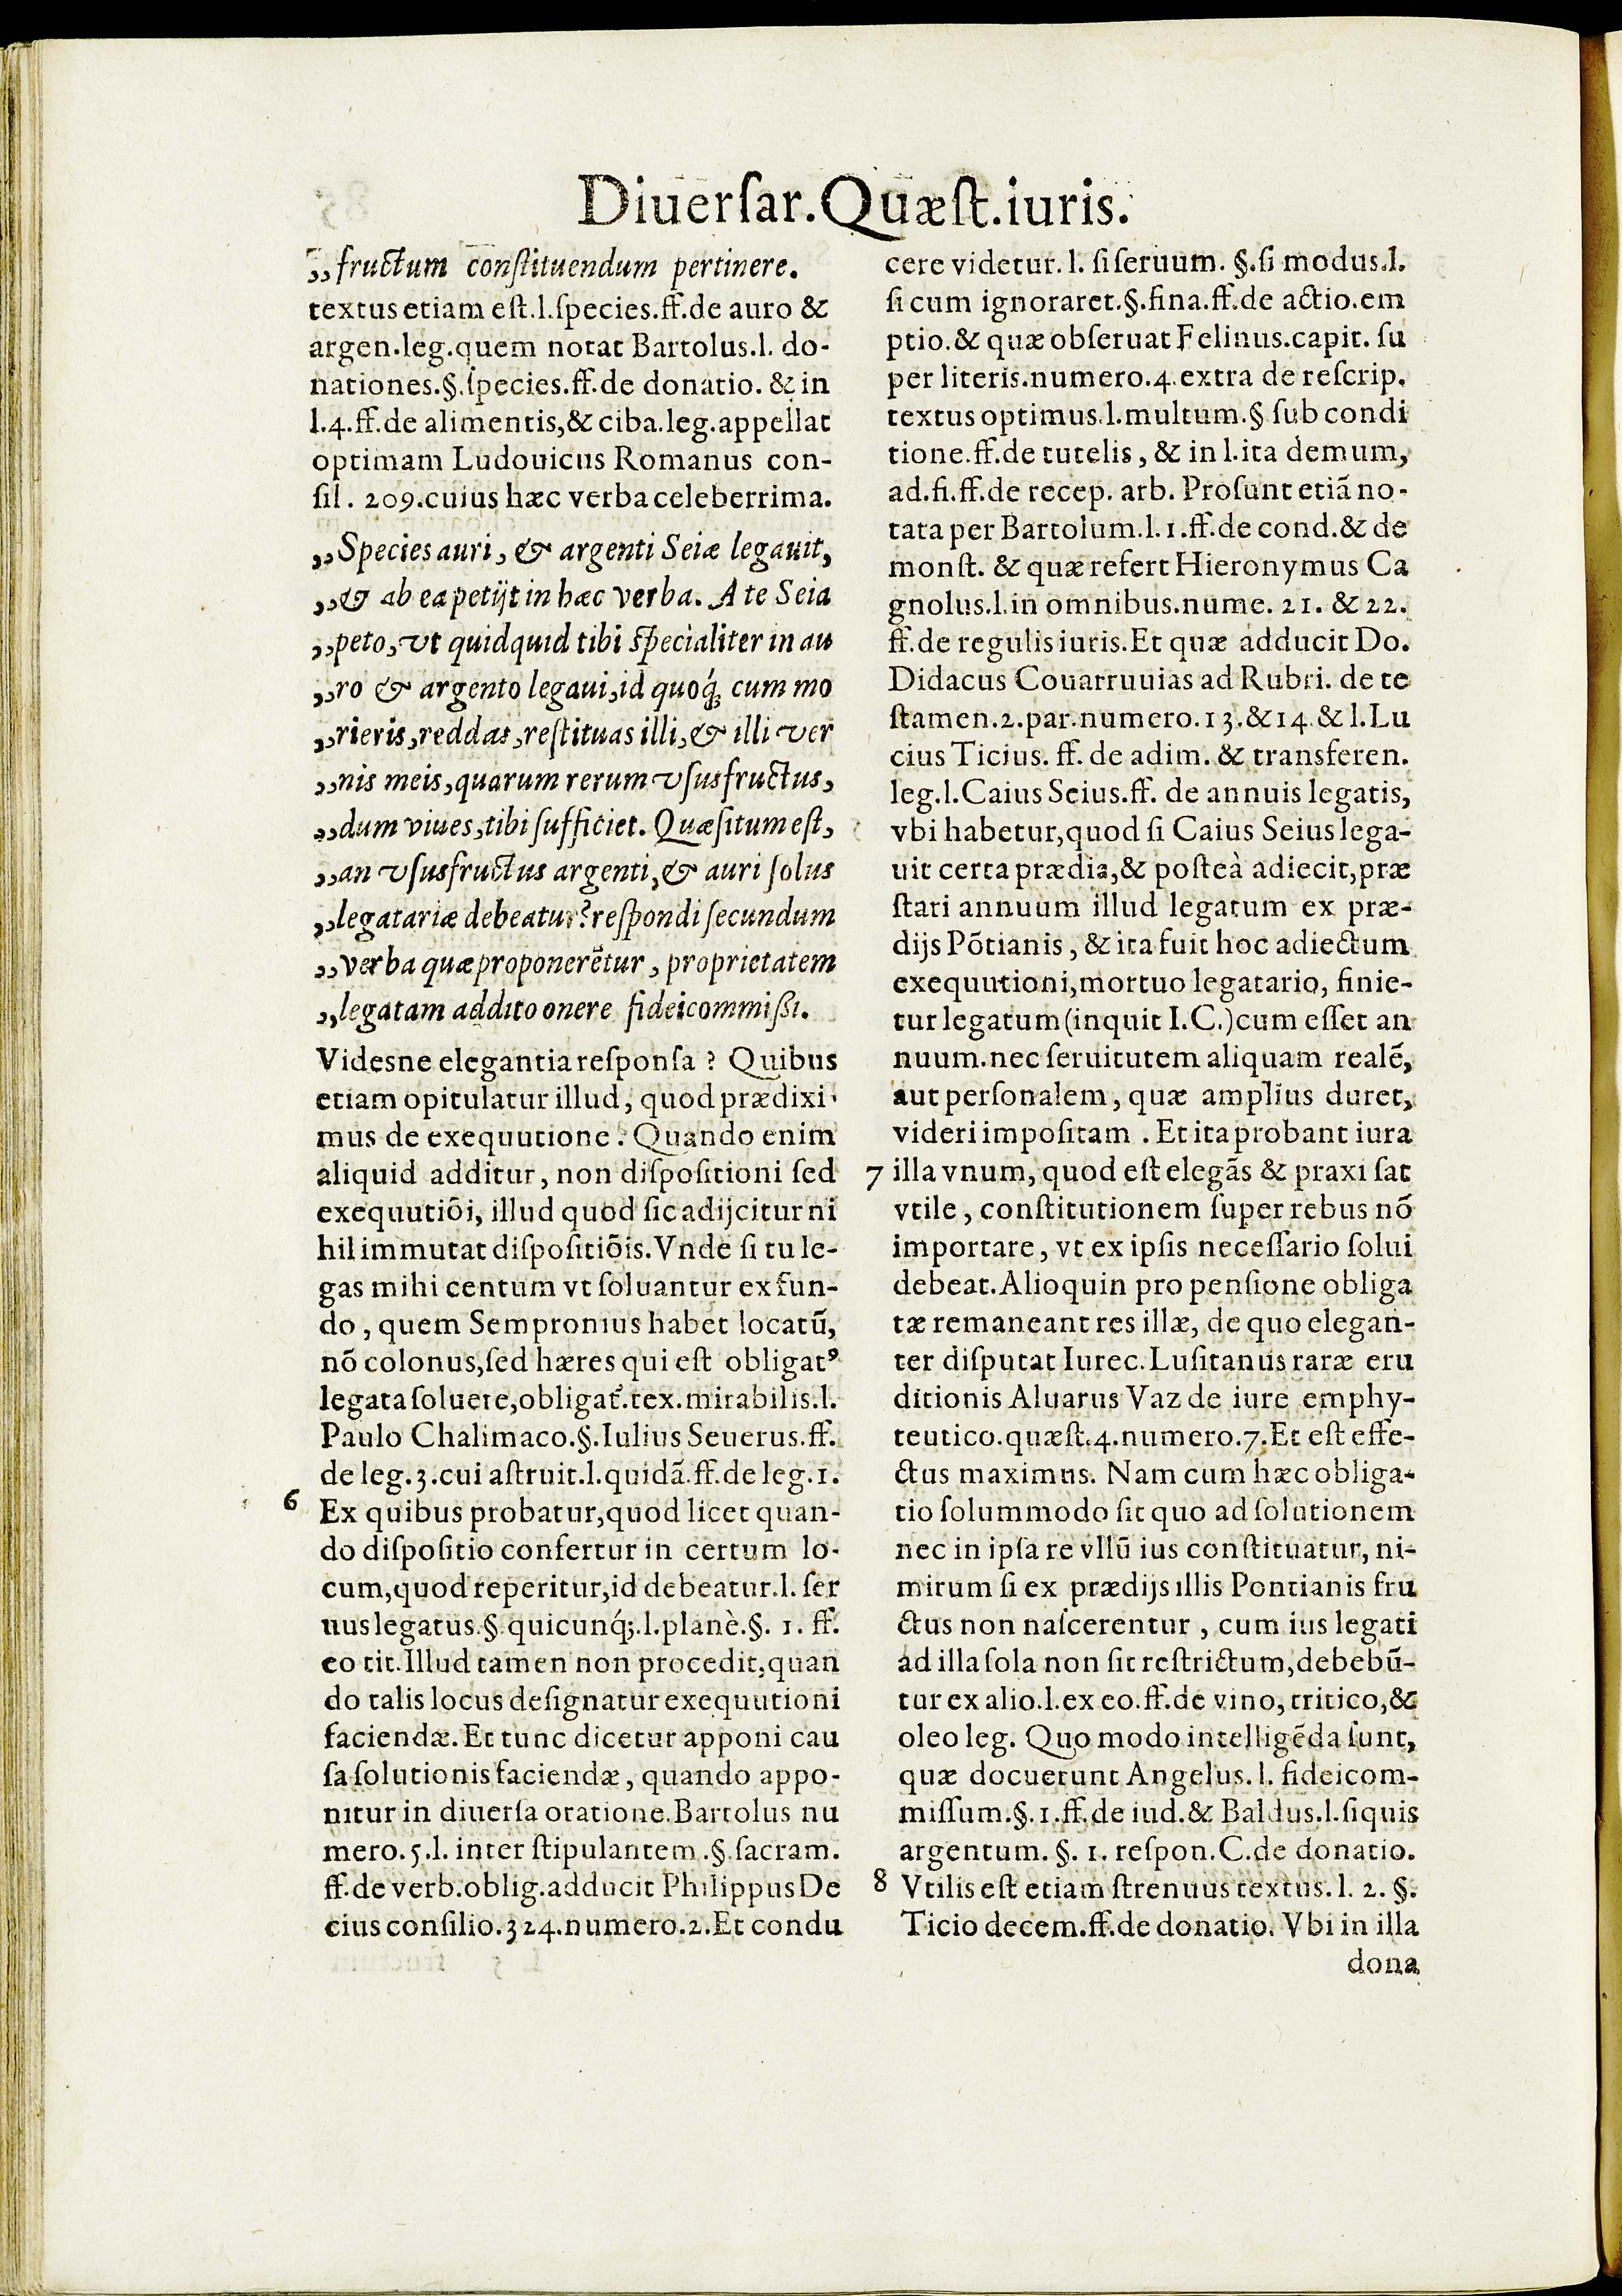 Diuerſar.Quæſt.iuris.
„fructum conſtituendum pertinere.
textus etiam eſt.l.ſpecies.ff.de auro &
argen.leg.quem notat Bartolus.l. do-
nationes.§.ſpecies.ff.de donatio. & in
l.4.ff.de alimentis,& ciba.leg.appellat
optimam Ludouicus Romanus con-
ſil. 209.cuius hæc verba celeberrima.
„Species auri, & argenti Seiæ legauit,
„& ab ea petijt in hæc verba. A te Seia
„peto, vt quidquid tibi ſpecialiter in au
„ro & argento legaui,id quoq́; cum mo
„rieris,reddas,reſtituas illi,& illi ver
„nis meis,quarum rerum vſusfructus,
„dum viues,tibi ſufficiet. Quæſitum eſt,
„an vſusfructus argenti,& auri ſolus
„legatariæ debeatur?reſpondi ſecundum
„verba quæ proponerẽtur, proprietatem
„legatam addito onere fideicommißi.
Videsne elegantia reſponſa ? Quibus
etiam opitulatur illud, quod prædixi-
mus de exequutione. Quando enim
aliquid additur, non diſpoſitioni ſed
exequutiõi, illud quod ſic adijcitur ni
hil immutat diſpoſitiõis.Vnde ſi tu le-
gas mihi centum vt ſoluantur ex fun-
do, quem Sempronius habet locatũ,
nõ colonus,ſed hæres qui eſt obligatꝰ
legata ſoluere,obligat̃.tex.mirabilis.l.
Paulo Chalimaco.§.Iulius Seuerus.ff.
de leg.3.cui aſtruit.l.quidã.ff.de leg.1.
6 Ex quibus probatur,quod licet quan-
do diſpoſitio confertur in certum lo-
cum,quod reperitur,id debeatur.l. ſer
uus legatus.§.quicunq́;.l.planè.§. 1. ff.
eo tit.Illud tamen non procedit,quan
do talis locus deſignatur exequutioni
faciendæ. Et tunc dicetur apponi cau
ſa ſolutionis faciendæ, quando appo-
nitur in diuerſa oratione.Bartolus nu
mero.5.l. inter ſtipulantem.§.ſacram.
ff.de verb.oblig.adducit Philippus De
cius conſilio.324.numero.2.Et condu
cere videtur. l. ſi ſeruum. §.ſi modus.l.
ſi cum ignoraret.§.fina.ff.de actio.em
ptio.& quæ obſeruat Felinus.capit. ſu
per literis.numero.4.extra de reſcrip.
textus optimus.l.multum.§ ſub condi
tione.ff.de tutelis, & in l.ita demum,
ad.fi.ff.de recep. arb. Proſunt etiã no-
tata per Bartolum.l.1.ff.de cond.& de
monſt. & quæ refert Hieronymus Ca
gnolus.l.in omnibus.nume. 21. & 22.
ff.de regulis iuris.Et quæ adducit Do.
Didacus Couarruuias ad Rubri. de te
ſtamen.2.par.numero.13.&14.& l.Lu
cius Ticius. ff. de adim. & transferen.
leg.l.Caius Seius.ff. de annuis legatis,
vbi habetur,quod ſi Caius Seius lega-
uit certa prædia,& poſteà adiecit,præ
ſtari annuum illud legatum ex præ-
dijs Põtianis, & ita fuit hoc adiectum
exequutioni,mortuo legatario, finie-
tur legatum(inquit I.C.)cum eſſet an
nuum.nec ſeruitutem aliquam realẽ,
aut perſonalem, quæ amplius duret,
videri impoſitam . Et ita probant iura
7 illa vnum, quod eſt elegãs & praxi ſat
vtile, conſtitutionem ſuper rebus nõ
importare, vt ex ipſis neceſſario ſolui
debeat.Alioquin pro penſione obliga
tæ remaneant res illæ, de quo elegan-
ter diſputat Iurec.Luſitanus raræ eru
ditionis Aluarus Vaz de iure emphy-
teutico.quæſt.4.numero.7.Et eſt effe-
ctus maximus. Nam cum hæc obliga-
tio ſolummodo ſit quo ad ſolutionem
nec in ipſa re vllũ ius conſtituatur, ni-
mirum ſi ex prædijs illis Pontianis fru
ctus non naſcerentur, cum ius legati
ad illa ſola non ſit reſtrictum,debebũ-
tur ex alio.l.ex eo.ff.de vino, tritico,&
oleo leg. Quo modo intelligẽda ſunt,
quæ docuerunt Angelus. l. fideicom-
miſſum.§.1.ff.de iud.& Baldus.l.ſiquis
argentum. §. 1. reſpon.C.de donatio.
8 Vtilis eſt etiam ſtrenuus textus. l. 2. §.
Ticio decem.ff.de donatio. Vbi in illa
dona